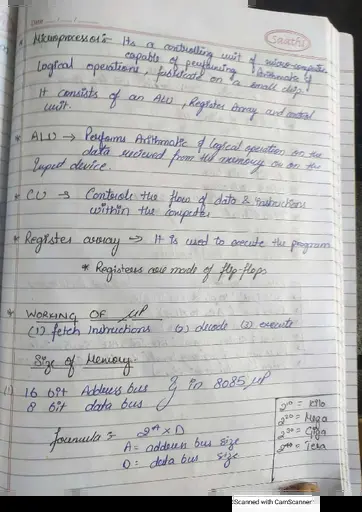 Date
Saathi
* Microprocessor :- Its a controlling unit of micro-computer
capable of performing Arithmatic &
Logical operations, fabricate on a small chip.
It consists of an ALU, Register Array and control
unit.
* ALU → Performs Arithmatic & logical operation on the
data recieved from the memory or on the
Input device.
* CU → Controls the flow of data & instructions
within the computer
* Register array → It is used to execute the program
* Registers are made of flip-flops
* WORKING OF μP
(1) fetch Instructions (2) decode (3) execute
Size of Memory.
16 bit Address bus } in 8085 μP
8 bit data bus
formula :- 2^A × D
A = address bus size
D = data bus size
2^10 = Kilo
2^20 = Mega
2^30 = Giga
2^40 = Tera
Scanned with CamScanner